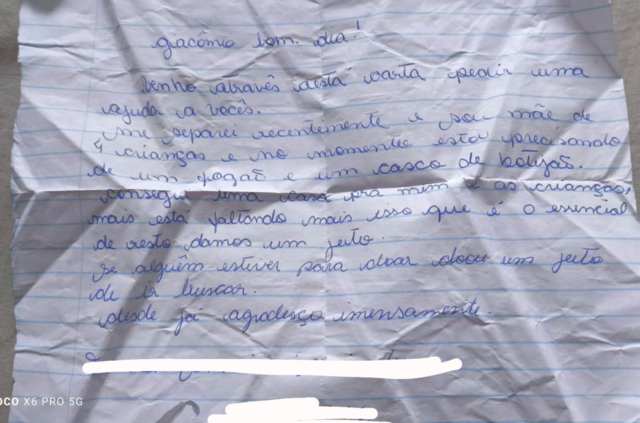 giacômo bom dia!
Venho através desta carta pedir uma
ajuda a vocês.
me separei recentemente e sou mãe de
4 crianças e no momento esta precisando
de um fogaõ e um casco de botijaõ.
consegui uma casa pra mim e as crianças,
mais está faltando mais isso que é o essencial
de resto damos um jeito.
se alguém estiver para doar dou um jeito
de ir buscar.
desde já agradeço imensamente.
OCO X6 PRO 5G